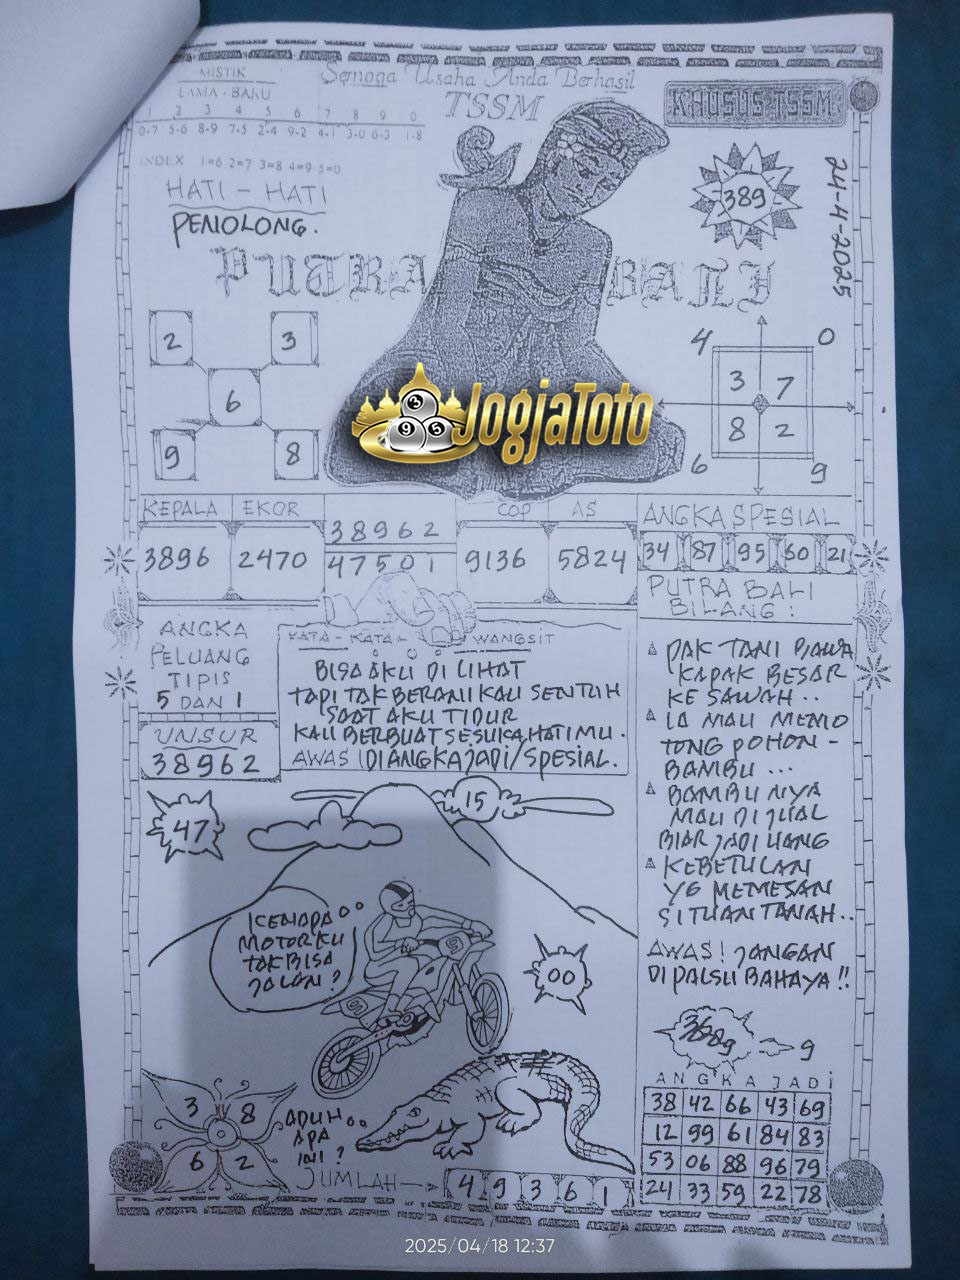 MISTIK
LAMA - BARU
1 2 3 4 5 6 7 8 9 0
0-7 5-6 8-9 7-5 2-4 9-2 4-1 3-0 6-3 1-8
INDEX 1=6 2=7 3=8 4=9 5=0
HATI - HATI
PENOLONG.
Semoga Usaha Anda Berhasil
TSSM
KHUSUS TSSM
389
24-4-2025
PUTRA BALI
2 3
6
9 8
JogjaToto
3
9 5
4 0
3 7
8 2
6 9
KEPALA EKOR
3896 2470
38962
47501
COP AS
9136 5824
ANGKA SPESIAL
34 87 95 60 21
PUTRA BALI
BILANG :
ANGKA
PELUANG
TIPIS
5 DAN 1
UNSUR
38962
KATA - KATA WANGSIT
BISA AKU DI LIHAT
TAPI TAK BERANI KAU SENTUH
SAAT AKU TIDUR
KAU BERBUAT SESUKA HATIMU.
AWAS ! DI ANGKA JADI/SPESIAL.
PAK TANI BAWA
KAPAK BESAR
KE SAWAH..
IA MAU MEMO
TONG POHON -
BAMBU ...
BAMBU NYA
MAU DI JUAL
BIAR JADI UANG
KEBETULAN
YG MEMESAN
SI TUAN TANAH..
AWAS! JANGAN
DI PALSU BAHAYA !!
47
15
KENAPA
MOTORKU
TAK BISA
JALAN ?
9
00
9
3 8
6 2
ADUH..
APA
INI ?
JUMLAH
4 9 3 6 1
ANGKA JADI
38 42 66 43 69
12 99 61 84 83
53 06 88 96 79
24 33 59 22 78
2025/04/18 12:37